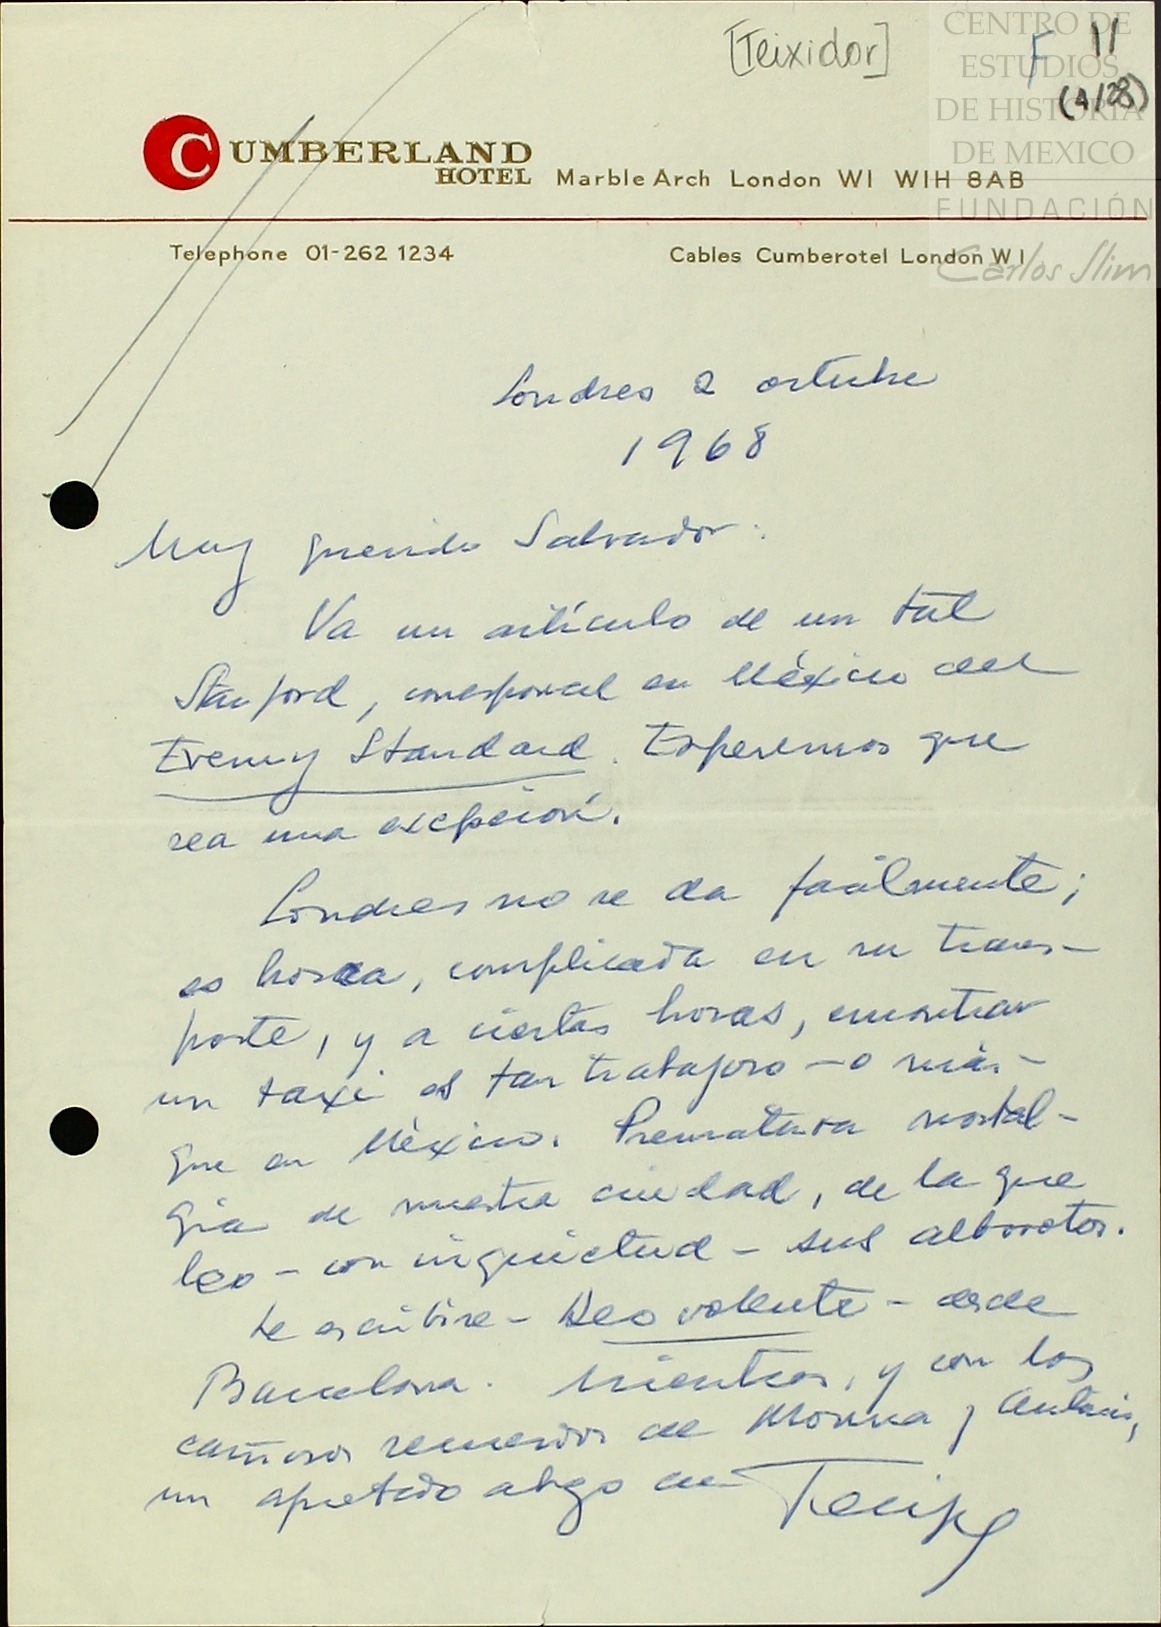 [Teixidor]
F 11
(4/28)
CENTRO DE
ESTUDIOS
DE HISTORIA
DE MEXICO
FUNDACIÓN
Carlos Slim
CUMBERLAND
HOTEL Marble Arch London W1 W1H 8AB
Telephone 01-262 1234 Cables Cumberotel London W1
Londres 2 octubre
1968
Muy querido Salvador:
Va un artículo de un tal
Stanford, corresponsal en México del
Evening Standard. Esperemos que
sea una excepción.
Londres no se da fácilmente;
es hosca, complicada en su trans-
porte, y a ciertas horas, encontrar
un taxi es tan trabajoso - o más -
que en México. Prematura nostal-
gia de nuestra ciudad, de la que
leo - con inquietud - sus alborotos.
Te escribiré - Deo volente - desde
Barcelona. Mientras, y con los
cariñosos recuerdos de Monna y
un apretado abzo de Felipe